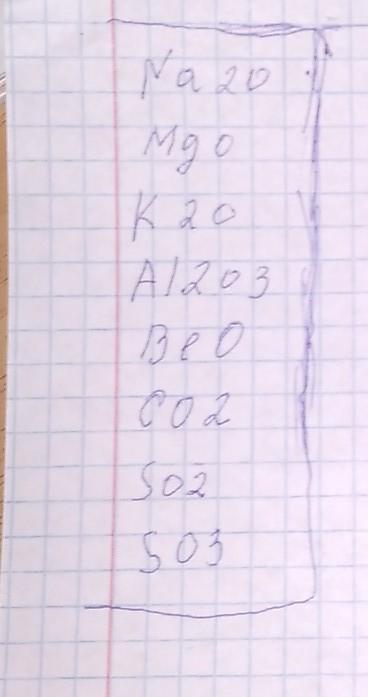 Na2O
MgO
K2O
Al2O3
BeO
CO2
SO2
SO3